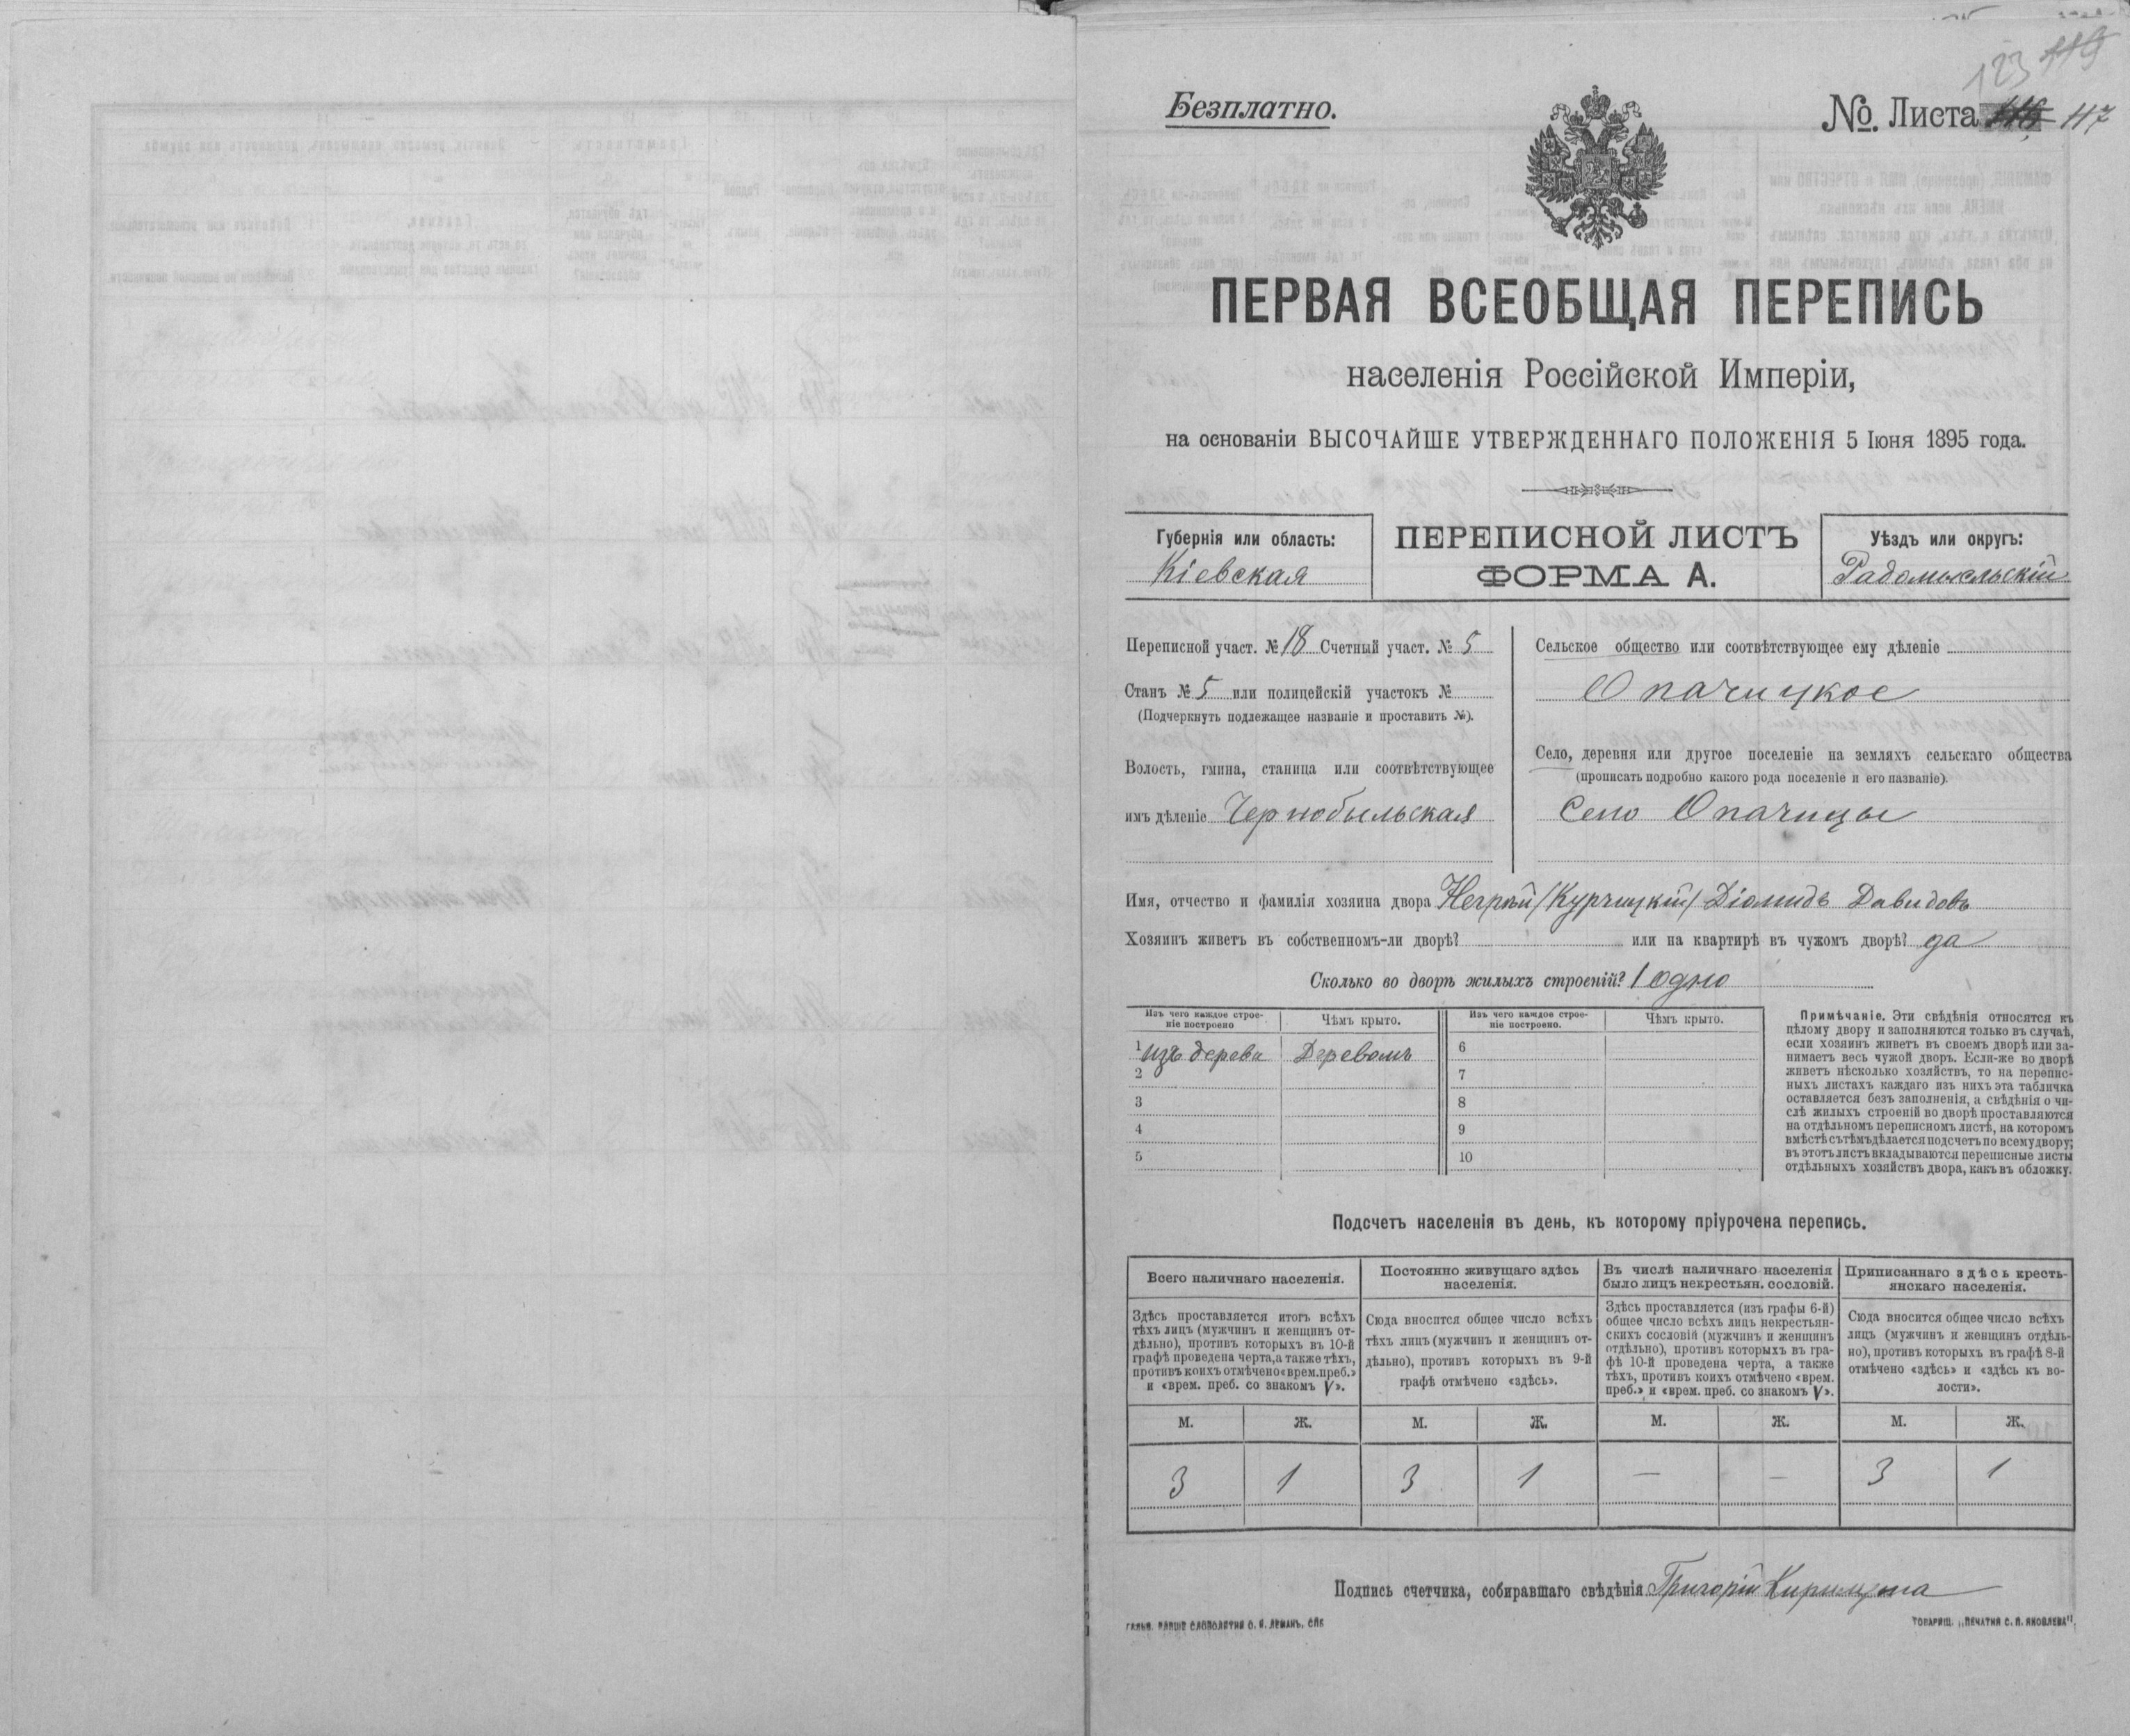 123 119
Безплатно.
№. Листа 117
ПЕРВАЯ ВСЕОБЩАЯ ПЕРЕПИСЬ
населенія Россійской Имперіи,
на основаніи ВЫСОЧАЙШЕ УТВЕРЖДЕННАГО ПОЛОЖЕНІЯ 5 Іюня 1895 года.
Губернія или область:
Кіевская
ПЕРЕПИСНОЙ ЛИСТЪ
ФОРМА А.
Уѣздъ или округъ:
Радомысльскій
Переписной участ. № 18 Счетный участ. № 5
Станъ № 5 или полицейскій участокъ №
(Подчеркнуть подлежащее названіе и проставить №).
Волость, гмина, станица или соотвѣтствующее
имъ дѣленіе Чернобыльская
Сельское общество или соотвѣтствующее ему дѣленіе
Опачицкое
Село, деревня или другое поселеніе на земляхъ сельскаго общества
(прописать подробно какого рода поселеніе и его названіе).
Село Опачицы
Имя, отчество и фамилія хозяина двора /Курчицкій/ Діомидъ Давидовъ
Хозяинъ живетъ въ собственномъ-ли дворѣ? или на квартирѣ въ чужомъ дворѣ? да
Сколько во дворѣ жилыхъ строеній? 1 одно
Изъ чего каждое строе-
ніе построено
Чѣмъ крыто.
Изъ чего каждое строе-
ніе построено.
Чѣмъ крыто.
1 изъ дерева Деревомъ 6
2 7
3 8
4 9
5 10
Примѣчаніе. Эти свѣдѣнія относятся къ
цѣлому двору и заполняются только въ случаѣ,
если хозяинъ живетъ въ своемъ дворѣ или за-
нимаетъ весь чужой дворъ. Если-же во дворѣ
живетъ нѣсколько хозяйствъ, то на перепис-
ныхъ листахъ каждаго изъ нихъ эта табличка
оставляется безъ заполненія, а свѣдѣнія о чи-
слѣ жилыхъ строеній во дворѣ проставляются
на отдѣльномъ переписномъ листѣ, на которомъ
вмѣстѣ съ тѣмъ дѣлается подсчетъ по всему двору;
въ этотъ листъ вкладываются переписные листы
отдѣльныхъ хозяйствъ двора, какъ въ обложку.
Подсчетъ населенія въ день, къ которому пріурочена перепись.
Всего наличнаго населенія.
Здѣсь проставляется итогъ всѣхъ
тѣхъ лицъ (мужчинъ и женщинъ от-
дѣльно), противъ которыхъ въ 10-й
графѣ проведена черта, а также тѣхъ,
противъ коихъ отмѣчено «врем. преб.»
и «врем. преб. со знакомъ V».
Постоянно живущаго здѣсь
населенія.
Сюда вносится общее число всѣхъ
тѣхъ лицъ (мужчинъ и женщинъ от-
дѣльно), противъ которыхъ въ 9-й
графѣ отмѣчено «здѣсь».
Въ числѣ наличнаго населенія
было лицъ некрестьян. сословій.
Здѣсь проставляется (изъ графы 6-й)
общее число всѣхъ лицъ некрестьян-
скихъ сословій (мужчинъ и женщинъ
отдѣльно), противъ которыхъ въ гра-
фѣ 10-й проведена черта, а также
тѣхъ, противъ коихъ отмѣчено «врем.
преб.» и «врем. преб. со знакомъ V».
Приписаннаго здѣсь кресть-
янскаго населенія.
Сюда вносится общее число всѣхъ
лицъ (мужчинъ и женщинъ отдѣль-
но), противъ которыхъ въ графѣ 8-й
отмѣчено «здѣсь» и «здѣсь къ во-
лости».
М. Ж. М. Ж. М. Ж. М. Ж.
3 1 3 1 — — 3 1
Подпись счетчика, собиравшаго свѣдѣнія Григорій
ТОВАРИЩ. „ПЕЧАТНЯ С. П. ЯКОВЛЕВА“.